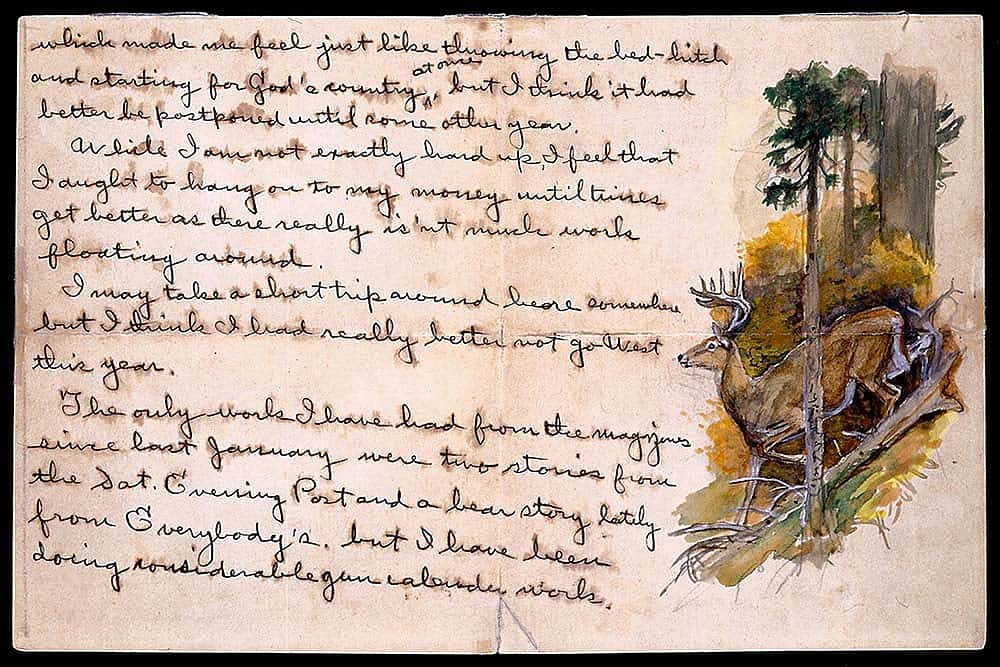 which made me feel just like throwing the bed-hitch
and starting for God's country at once, but I think it had
better be postponed until some other year.
While I am not exactly hard up, I feel that
I aught to hang on to my money until times
get better as there really is'nt much work
floating around.
I may take a short trip around here somewhere
but I think I had really better not go West
this year.
The only work I have had from the magazines
since last January were two stories from
the Sat. Evening Post and a bear story lately
from Everybody's. but I have been
doing considerable gun calender work.